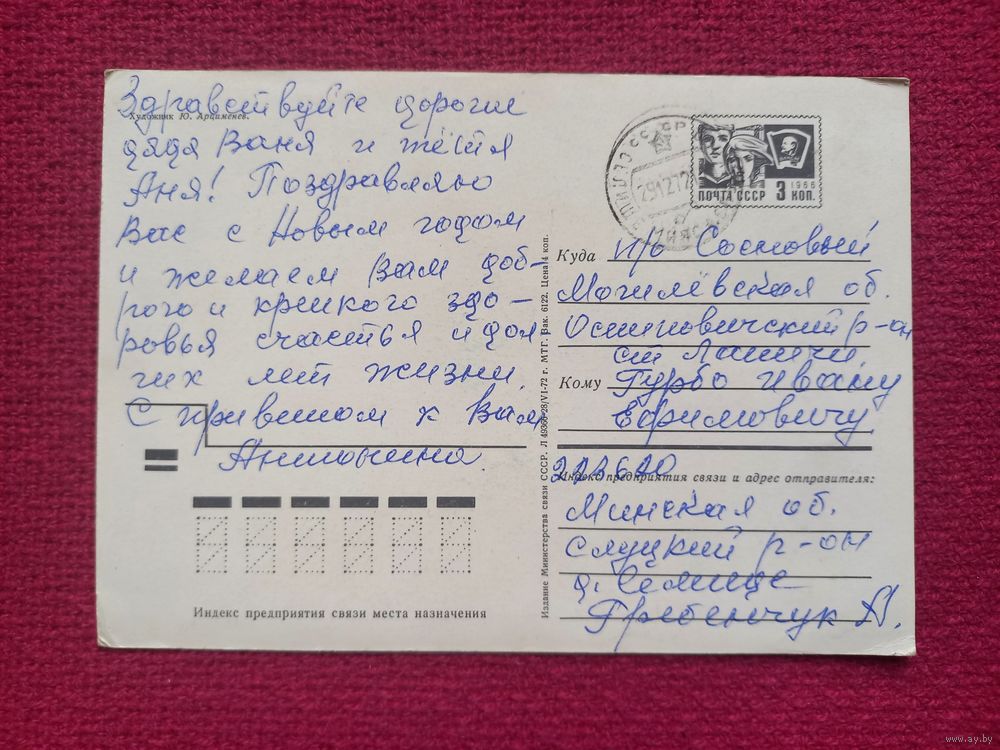 Здравствуйте дорогие
Художник Ю. Арцименев.
дядя Ваня и тётя
Аня! Поздравляю
Вас с Новым годом
и желаем Вам доб-
рого и крепкого здо-
ровья счастья и дол
гих лет жизни.
С приветом к Вам
Антонина.
Индекс предприятия связи места назначения
Издание Министерства связи СССР. Л 49366 28/VI-72 г. МТГ. Зак. 6122. Цена 4 коп.
ПОЧТА СССР 3 КОП.
1966
СССР
291272
Куда п/о Сосновый
Могилёвская об.
Осиповичский р-он
ст Лапичи
Кому Гурбо Ивану
Ефимовичу
223620
Индекс предприятия связи и адрес отправителя:
Минская об.
Слуцкий р-он
д. Селище
Гребенчук А.
www.ay.by